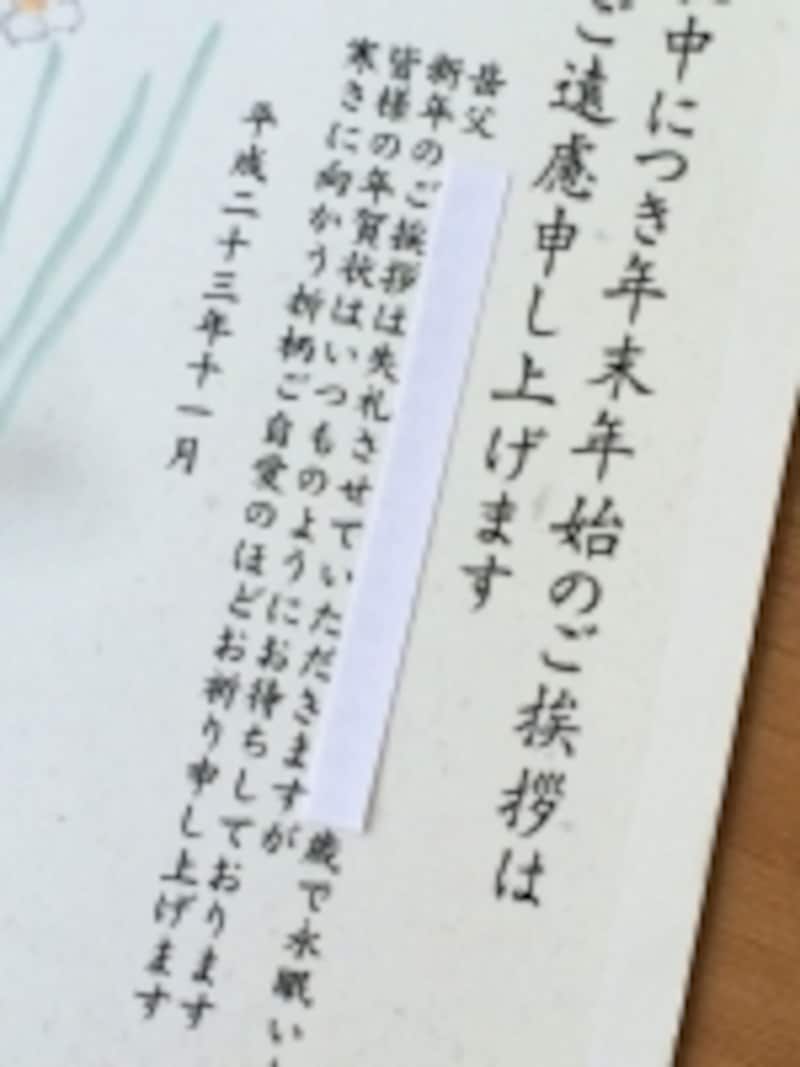 中につき年末年始のご挨拶は
ご遠慮申し上げます
岳父
歳で永眠い
新年のご挨拶は失礼させていただきますが
皆様の年賀状はいつものようにお待ちしております
寒さに向かう折柄ご自愛のほどお祈り申し上げます
平成二十三年十一月